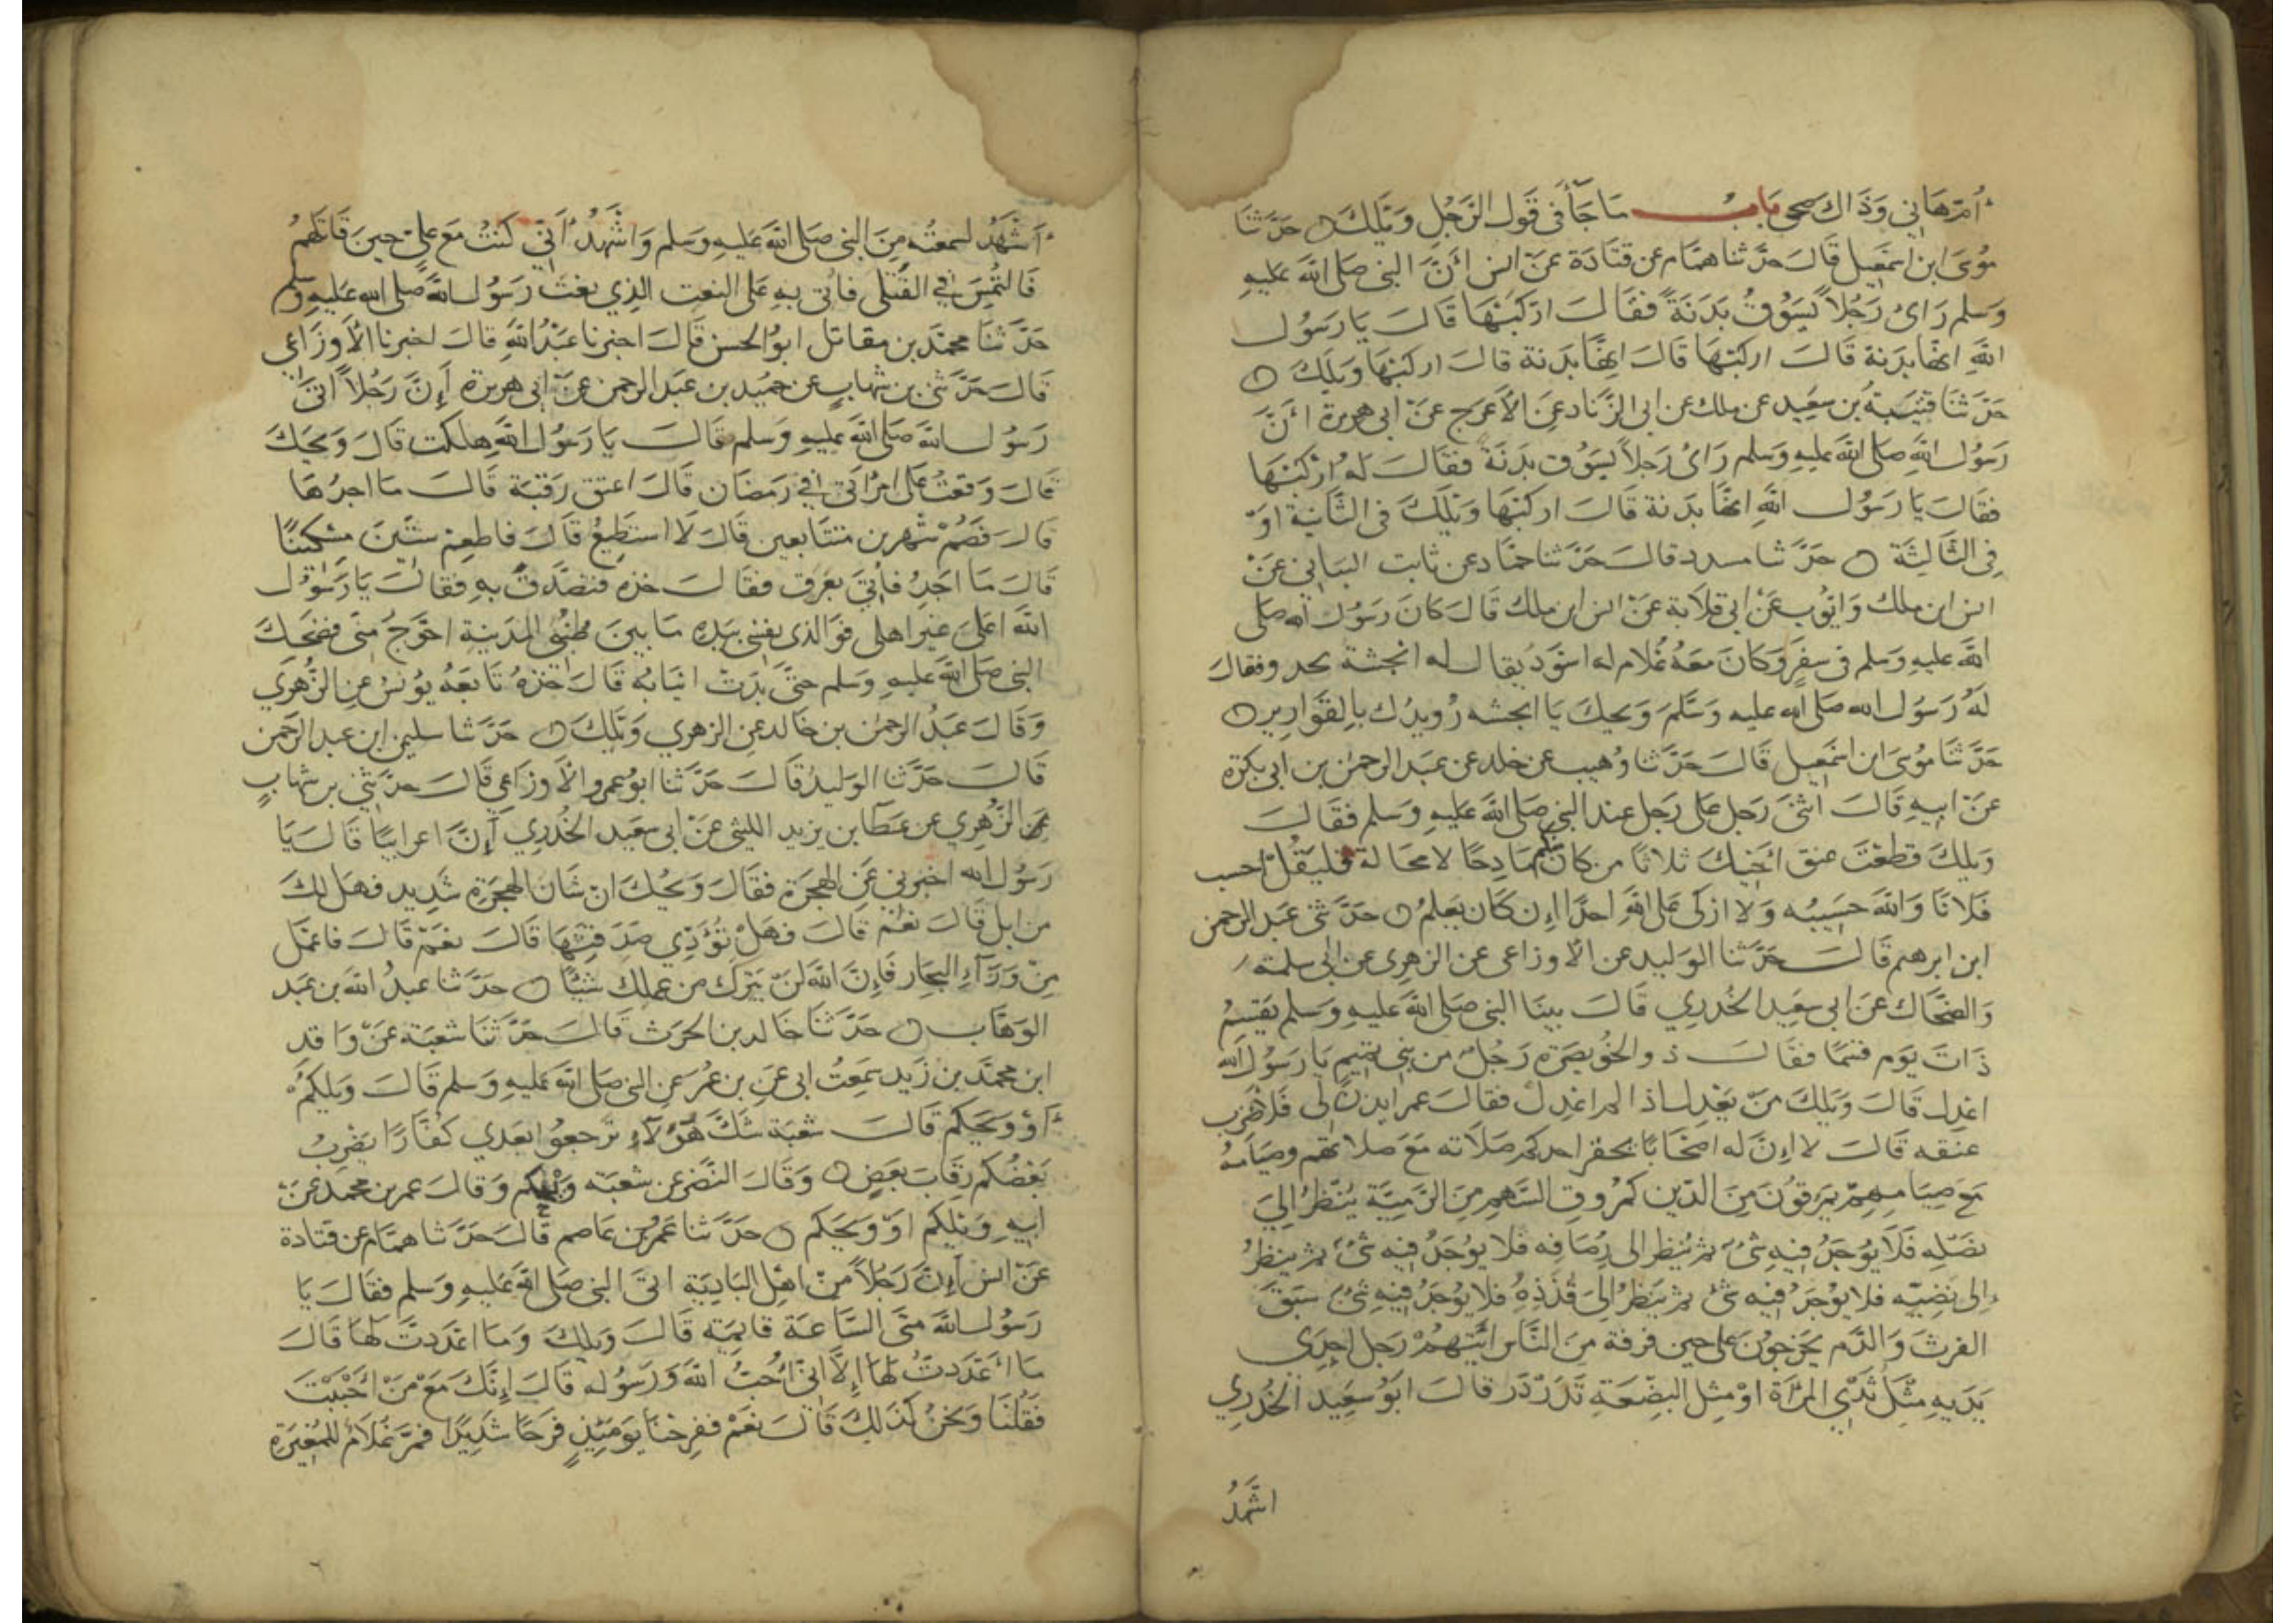 أم هاني وذاك ضحى باب ما جآ في قول الرجل ويلك حدثنا
موسى ابن اسمعيل قال حدثنا همام عن قتادة عن انس أن النبي صلى الله عليه
وسلم راى رجلا يسوق بدنة فقال اركبها قال يا رسول
الله انها بدنة قال اركبها قال انها بدنة قال اركبها ويلك
حدثنا قتيبة بن سعيد عن ملك عن ابي الزناد عن الأعرج عن ابي هريرة أن
رسول الله صلى الله عليه وسلم راى رجلا يسوق بدنة فقال له اركبها
فقال يا رسول الله انها بدنة قال اركبها ويلك في الثانية او
في الثالثة حدثنا مسدد قال حدثنا حماد عن ثابت البناني عن
انس ابن ملك وايوب عن ابي قلابة عن انس ابن ملك قال كان رسول الله صلى
الله عليه وسلم في سفر وكان معه غلام له اسود يقال له انجشة يحدو فقال
له رسول الله صلى الله عليه وسلم ويحك يا انجشه رويدك بالقوارير
حدثنا موسى ابن اسمعيل قال حدثنا وهيب عن خلد عن عبد الرحمن بن ابي بكرة
عن ابيه قال اثنى رجل على رجل عند النبي صلى الله عليه وسلم فقال
ويلك قطعت عنق اخيك ثلاثا من كان منكم مادحا لا محالة فليقل احسب
فلانا والله حسيبه ولا ازكى على الله احدا إن كان يعلم حدثني عبد الرحمن
ابن ابرهيم قال حدثنا الوليد عن الأوزاعي عن الزهري عن ابي سلمة
والضحاك عن ابي سعيد الخدري قال بينا النبي صلى الله عليه وسلم يقسم
ذات يوم قسما فقال ذو الخويصرة رجل من بني تميم يا رسول الله
اعدل قال ويلك من يعدل اذا لم اعدل فقال عمر ايذن لي فلأضرب
عنقه قال لا إن له اصحابا يحقر احدكم صلاته مع صلاتهم وصيامه
مع صيامهم يمرقون من الدين كمروق السهم من الرمية ينظر إلى
نصله فلا يوجد فيه شئ ثم ينظر الى رصافه فلا يوجد فيه شئ ثم ينظر
إلى نضيه فلا يوجد فيه شئ ثم ينظر إلى قذذه فلا يوجد فيه شئ سبق
الفرث والدم يخرجون على حين فرقة من الناس ايتهم رجل احدى
يديه مثل ثدي المرأة او مثل البضعة تدردر قال ابو سعيد الخدري
اشهد
أشهد لسمعته من النبي صلى الله عليه وسلم واشهد أني كنت مع علي حين قاتلهم
فالتمس في القتلى فاتى به على النعت الذي نعت رسول الله صلى الله عليه وسلم
حدثنا محمد بن مقاتل ابو الحسن قال اخبرنا عبد الله قال اخبرنا الأوزاعي
قال حدثني بن شهاب عن حميد بن عبد الرحمن عن ابي هريرة أن رجلا اتى
رسول الله صلى الله عليه وسلم فقال يا رسول الله هلكت قال ويحك
قال وقعت على امراتي في رمضان قال اعتق رقبة قال ما اجدها
قال فصم شهرين متتابعين قال لا استطيع قال فاطعم ستين مسكينا
قال ما اجد فأتي بعرق فقال خذه فتصدق به فقال يا رسول
الله اعلى غير اهلي فوالذي نفسي بيده ما بين طنبي المدينة احوج مني فضحك
النبي صلى الله عليه وسلم حتى بدت انيابه قال خذه تابعه يونس عن الزهري
وقال عبد الرحمن بن خالد عن الزهري ويلك حدثنا سليمن ابن عبد الرحمن
قال حدثنا الوليد قال حدثنا ابو عمرو الأوزاعي قال حدثني بن شهاب
الزهري عن عطا بن يزيد الليثي عن ابي سعيد الخدري أن اعرابيا قال يا
رسول الله اخبرني عن الهجرة فقال ويحك ان شان الهجرة شديد فهل لك
من ابل قال نعم قال فهل تؤدي صدقتها قال نعم قال فاعمل
من ورآء البحار فإن الله لن يترك من عملك شيئا حدثنا عبد الله بن عبد
الوهاب حدثنا خالد بن الحرث قال حدثنا شعبة عن واقد
ابن محمد بن زيد سمعت ابي عن بن عمر عن النبي صلى الله عليه وسلم قال ويلكم
أو ويحكم قال شعبة شك هو لا ترجعوا بعدي كفارا يضرب
بعضكم رقاب بعض وقال النضر عن شعبه ويحكم وقال عمر بن محمد عن
ابيه ويلكم او ويحكم حدثنا عمرو بن عاصم قال حدثنا همام عن قتادة
عن انس أن رجلا من اهل البادية اتى النبي صلى الله عليه وسلم فقال يا
رسول الله متى الساعة قايمة قال ويلك وما اعددت لها قال
ما أعددت لها إلا اني أحب الله ورسوله قال إنك مع من أحببت
فقلنا ونحن كذلك قال نعم ففرحنا يومئذ فرحا شديدا فمر غلام للمغيرة